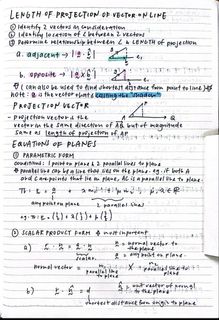 LENGTH OF PROJECTION OF VECTOR ON LINE
① Identify 2 vectors in consideration
② Identify location of ∠ between 2 vectors
③ Determine relationship between ∠ & LENGTH of projection
a. adjacent → |a · b̂|
b. opposite → |a × b̂|
(can also be used to find shortest distance from point to line)
note: a is the vector that's casting the "shadow"
PROJECTION VECTOR
- Projection vector is the
vector in the same direction of AB but of magnitude
same as length of projection of AP
EQUATIONS OF PLANES
① PARAMETRIC FORM
conditions: 1 point on plane & 2 parallel lines to plane
parallel line can be a line that lies on the plane. eg. if both A
and C are points that lie on plane, AC is a parallel line to plane.
any point on plane
2 parallel lines
② SCALAR PRODUCT FORM
most important
a) r · n = a · n
n = normal vector to
the plane
scalar
a = any point on plane.
normal vector = parallel line
to plane × parallel line to
plane
b) r · n̂ = d
n̂ = unit vector of normal
to the plane
shortest distance from origin to plane